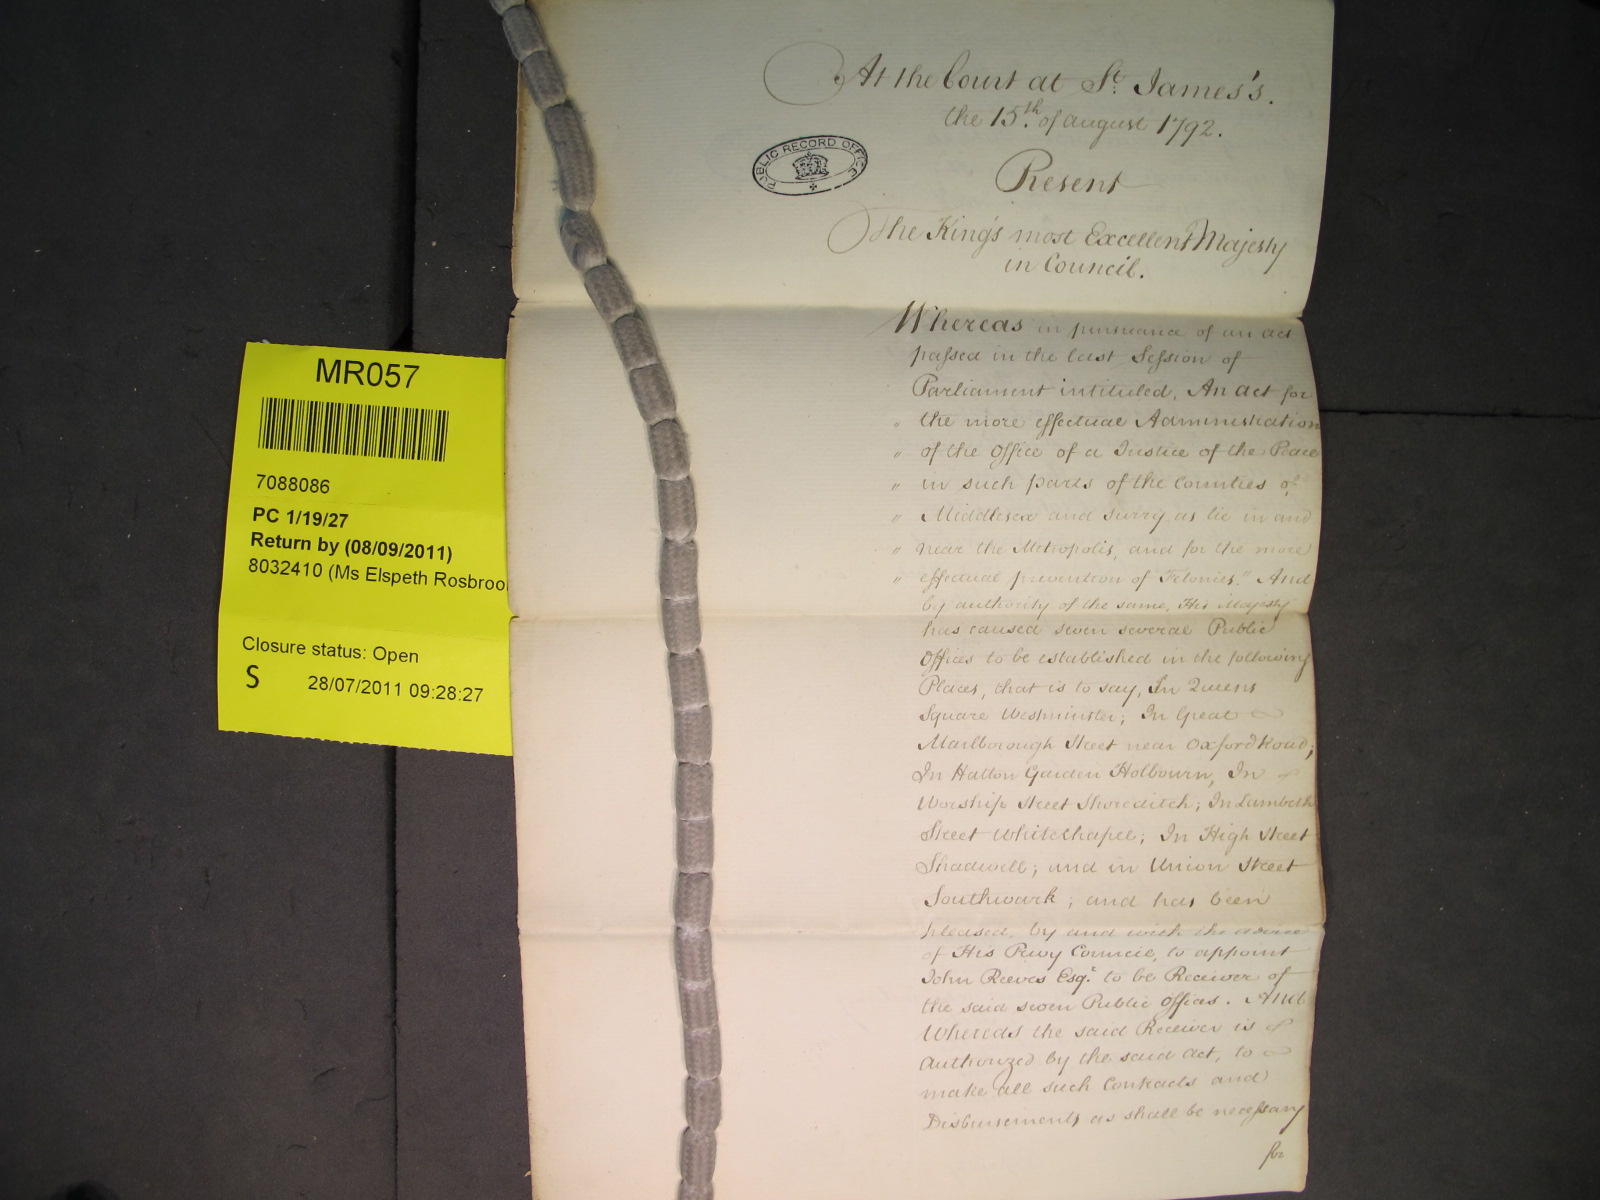 At the Court at St. James's.
the 15th. of august 1792.
PUBLIC RECORD OFFICE
Present
The King's most Excellent Majesty
in Council.
Whereas in pursuance of an act
passed in the last Session of
Parliament intituled, An act for
" the more effectual Administration
" of the Office of a Justice of the Peace
" in such parts of the Counties of
" Middlesex and Surry as lie in and
" near the Metropolis, and for the more
" effectual prevention of Felonies." And
by authority of the same, His Majesty
has caused seven several Public
Offices to be established in the following
Places, that is to say, In Queens
Square Westminster; In Great
Marlborough Street near Oxford Road;
In Hatton Garden Holbourn, In
Worship Street Shoreditch; In Lambeth
Street Whitechapel; In High Street
Shadwell; and in Union Street
Southwark; and has been
pleased, by and with the advice
of His Privy Council, to appoint
John Reeves Esqr. to be Receiver of
the said seven Public Offices. And
Whereas the said Receiver is
authorized by the said act, to
make all such Contracts and
Disbursements as shall be necessary
for
MR057
7088086
PC 1/19/27
Return by (08/09/2011)
8032410 (Ms Elspeth Rosbroo
Closure status: Open
S 28/07/2011 09:28:27